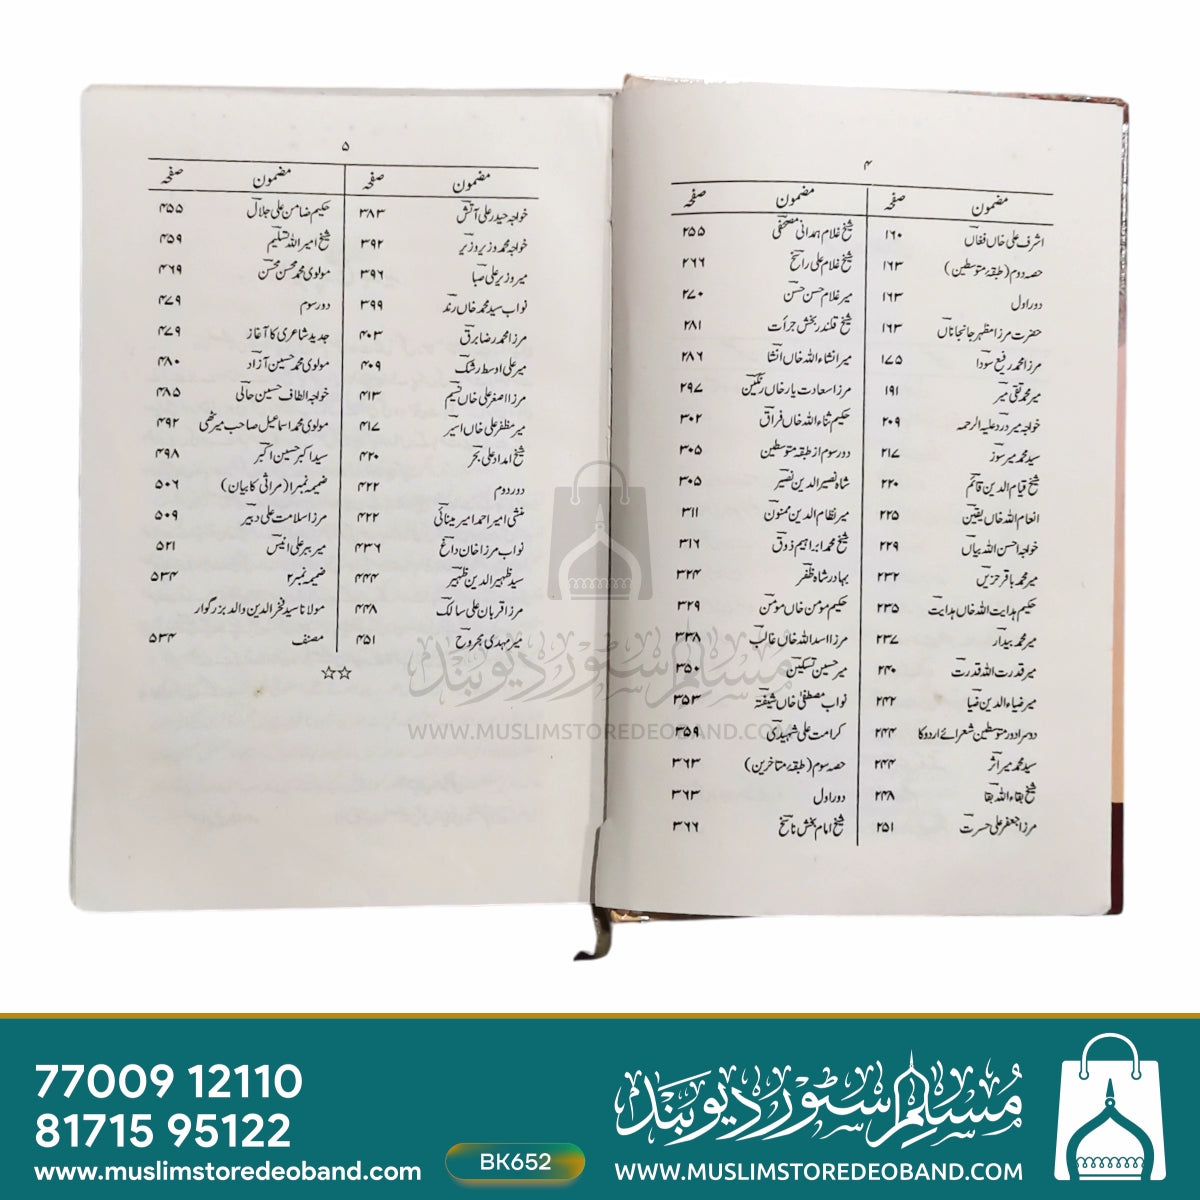 ۴
مضمون صفحہ
اشرف علی خاں فغاں ۱۶۰
حصہ دوم (طبقۂ متوسطین) ۱۶۳
دور اول ۱۶۳
حضرت مرزا مظہر جانجاناں ۱۶۳
مرزا محمد رفیع سودا ۱۷۵
میر محمد تقی میر ۱۹۱
خواجہ میر درد علیہ الرحمہ ۲۰۹
سید محمد میر سوز ۲۱۷
شیخ قیام الدین قائم ۲۲۰
انعام اللہ خاں یقین ۲۲۵
خواجہ احسن اللہ بیاں ۲۲۹
میر محمد باقر حزیں ۲۳۲
حکیم ہدایت اللہ خاں ہدایت ۲۳۵
میر محمد بیدار ۲۳۷
میر قدرت اللہ قدرت ۲۴۰
میر ضیاء الدین ضیا ۲۴۲
دوسرا دور متوسطین شعرائے اردو کا ۲۴۴
سید محمد میر اثر ۲۴۴
شیخ بقاء اللہ بقا ۲۴۸
مرزا جعفر علی حسرت ۲۵۱
مضمون صفحہ
شیخ غلام ہمدانی مصحفی ۲۵۵
شیخ غلام علی راسخ ۲۶۶
میر غلام حسن حسن ۲۷۰
شیخ قلندر بخش جرأت ۲۸۱
میر انشاء اللہ خاں انشا ۲۸۶
مرزا سعادت یار خاں رنگین ۲۹۷
حکیم ثناء اللہ خاں فراق ۳۰۲
دور سوم از طبقہ متوسطین ۳۰۵
شاہ نصیر الدین نصیر ۳۰۵
میر نظام الدین ممنون ۳۱۱
شیخ محمد ابراہیم ذوق ۳۱۶
بہادر شاہ ظفر ۳۲۴
حکیم مومن خاں مومن ۳۲۹
مرزا اسد اللہ خاں غالب ۳۳۸
میر حسین تسکین ۳۵۰
نواب مصطفیٰ خاں شیفتہ ۳۵۳
کرامت علی شہیدی ۳۵۹
حصہ سوم (طبقۂ متاخرین) ۳۶۳
دور اول ۳۶۳
شیخ امام بخش ناسخ ۳۶۶
۵
مضمون صفحہ
خواجہ حیدر علی آتش ۳۸۳
خواجہ محمد وزیر وزیر ۳۹۲
میر وزیر علی صبا ۳۹۶
نواب سید محمد خاں رند ۳۹۹
مرزا محمد رضا برق ۴۰۳
میر علی اوسط رشک ۴۰۹
مرزا اصغر علی خاں نسیم ۴۱۳
میر مظفر علی خاں اسیر ۴۱۷
شیخ امداد علی بحر ۴۲۰
دور دوم ۴۲۲
منشی امیر احمد امیر مینائی ۴۲۲
نواب مرزا خان داغ ۴۳۶
سید ظہیر الدین ظہیر ۴۴۴
مرزا قربان علی سالک ۴۴۸
میر مہدی مجروح ۴۵۱
مضمون صفحہ
حکیم ضامن علی جلال ۴۵۵
شیخ امیر اللہ تسلیم ۴۵۹
مولوی محمد محسن محسن ۴۶۹
دور سوم ۴۷۹
جدید شاعری کا آغاز ۴۷۹
مولوی محمد حسین آزاد ۴۸۰
خواجہ الطاف حسین حالی ۴۸۵
مولوی محمد اسماعیل صاحب میرٹھی ۴۹۲
سید اکبر حسین اکبر ۴۹۸
ضمیمہ نمبرا (مراثی کا بیان) ۵۰۶
مرزا سلامت علی دبیر ۵۰۹
میر ببر علی انیس ۵۲۱
ضمیمہ نمبر۲ ۵۳۴
مولانا سید فخر الدین والد بزرگوار
مصنف ۵۳۴
☆☆
مسلم سٹور دیوبند
WWW.MUSLIMSTOREDEOBAND.COM
77009 12110
81715 95122
www.muslimstoredeoband.com
BK652
مسلم سٹور دیوبند
WWW.MUSLIMSTOREDEOBAND.COM